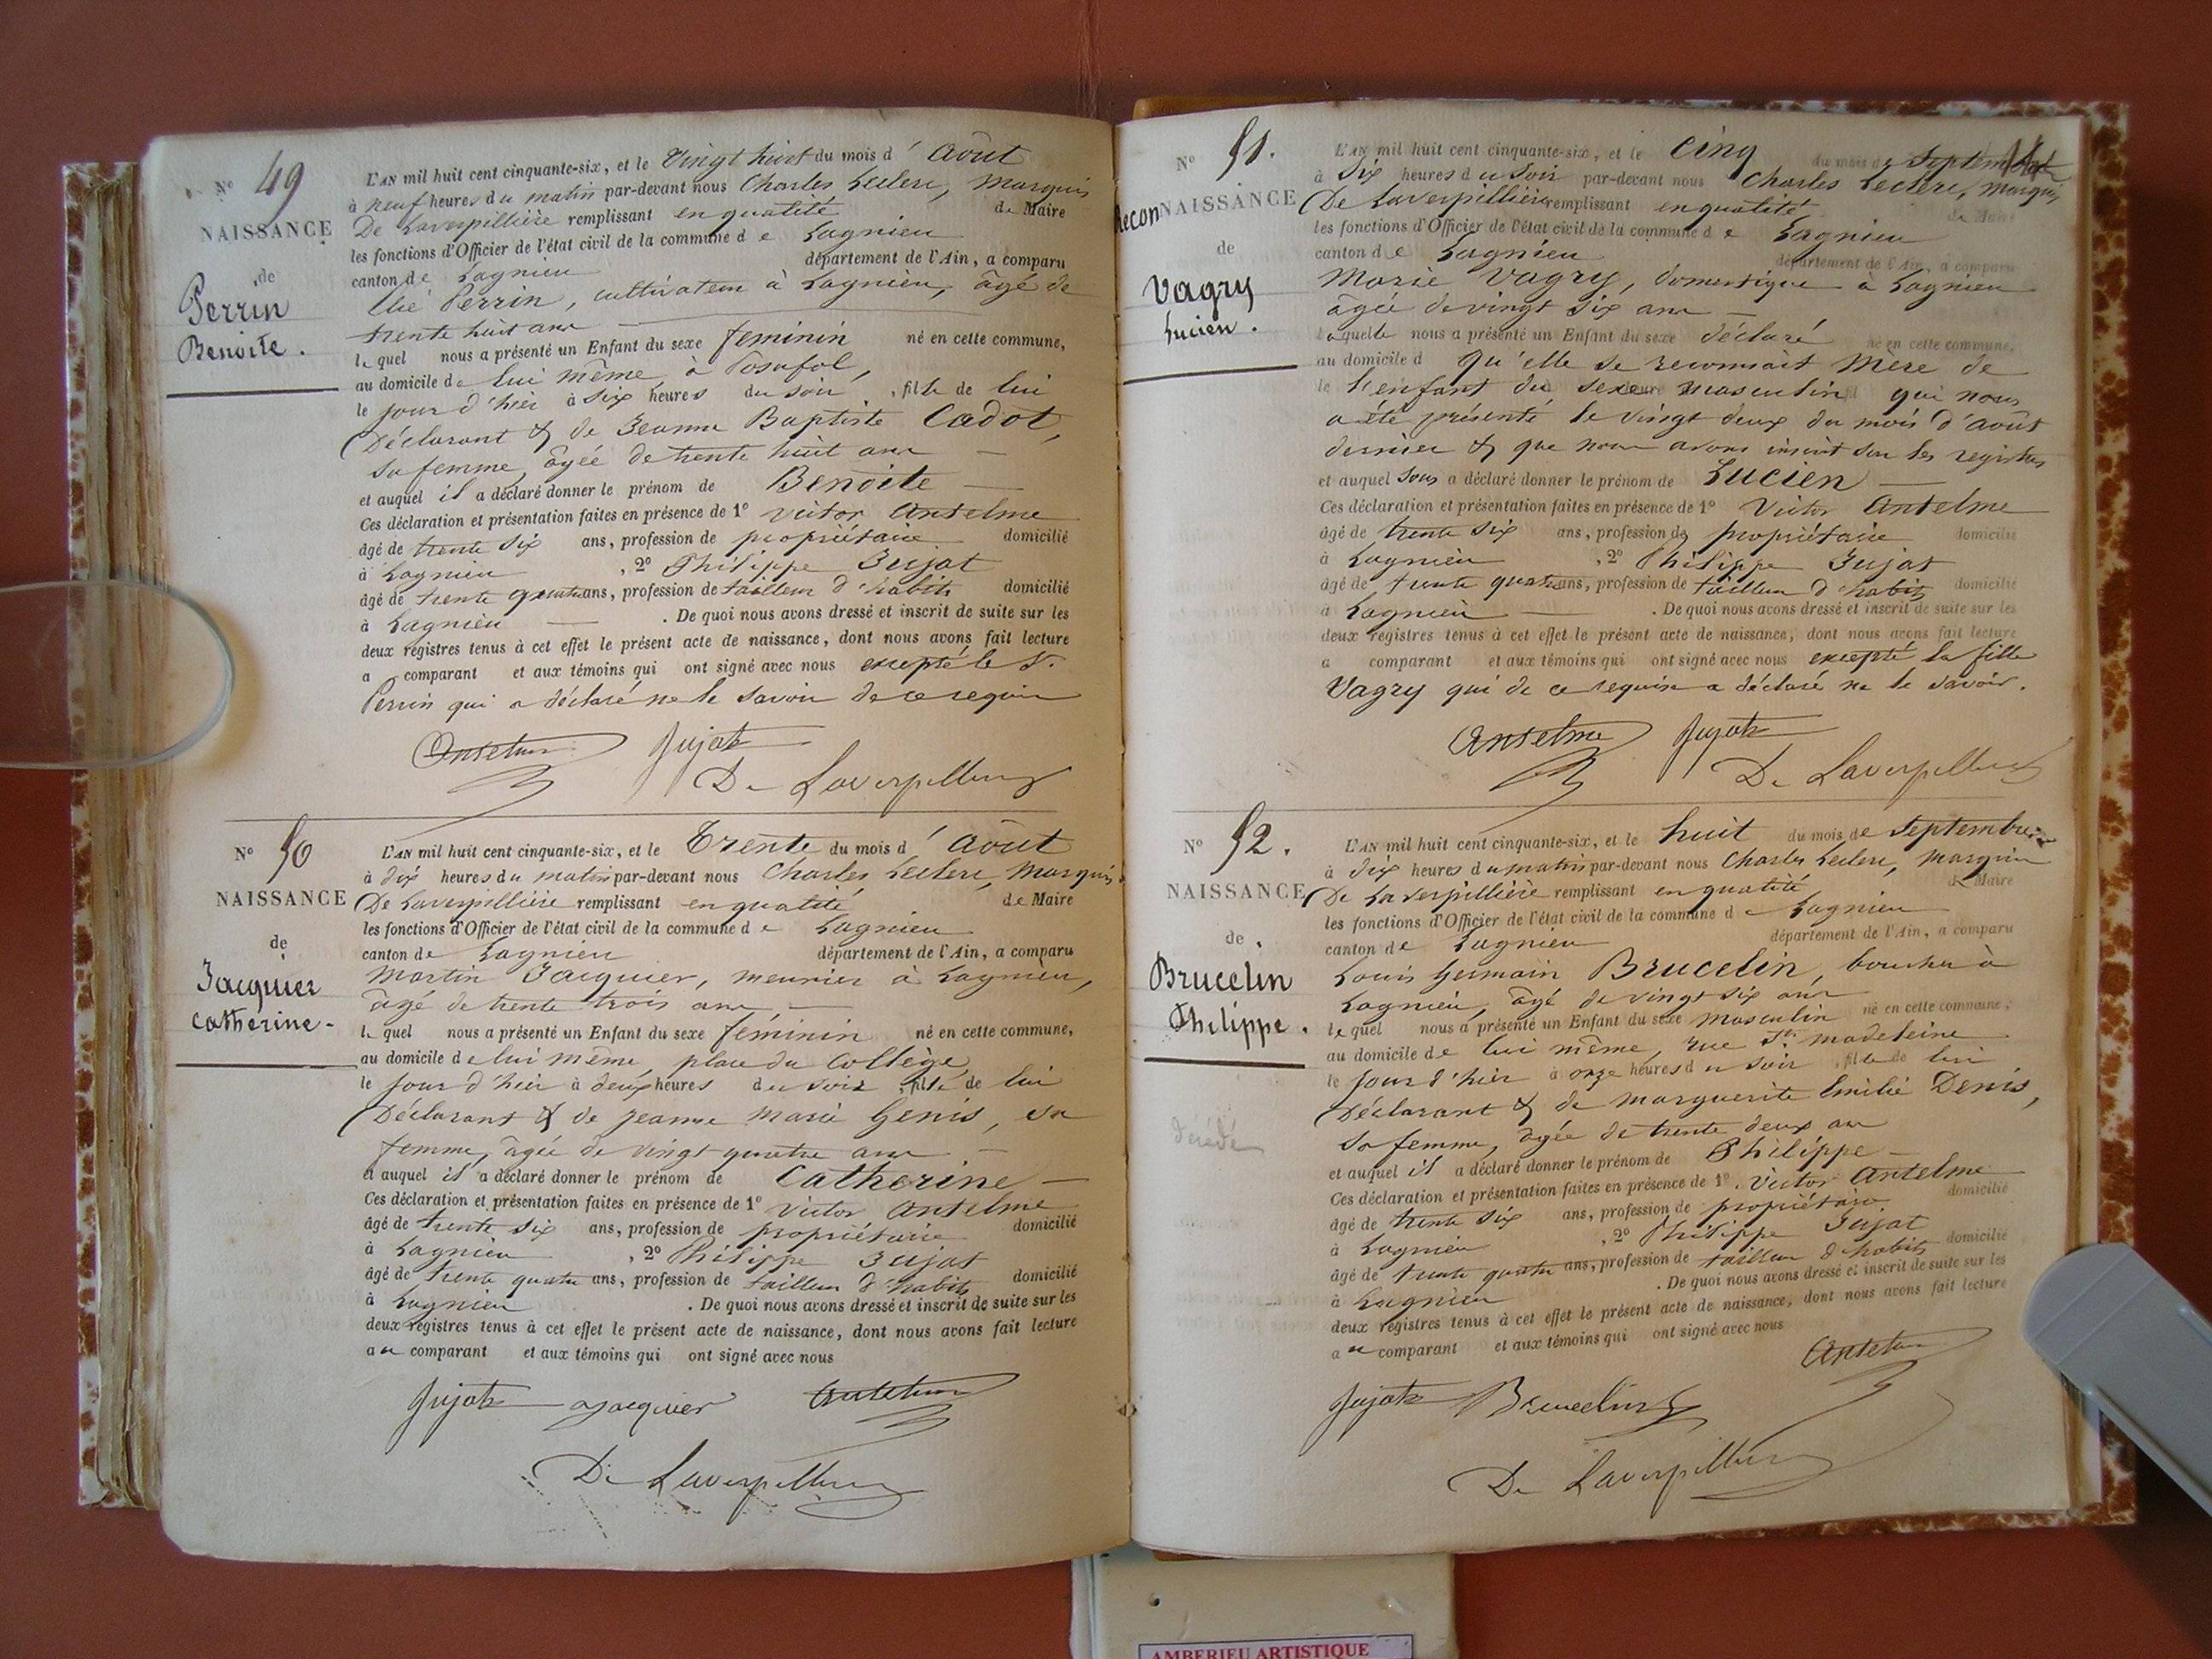 N° 49
NAISSANCE
de
Perrin
Benoite.
L'AN mil huit cent cinquante-six, et le Vingt huit du mois d' Août
à neuf heures du matin par-devant nous Charles Leclerc, Marquis
De Laverpillière remplissant en qualité de Maire
les fonctions d'Officier de l'état civil de la commune de Lagnieu
canton de Lagnieu département de l'Ain, a comparu
Perrin, cultivateur à Lagnieu, âgé de
trente huit ans
lequel nous a présenté un Enfant du sexe féminin né en cette commune,
au domicile de lui même, à Posafol,
le jour d'hier à six heures du soir, fille de lui
Déclarant & de Jeanne Baptiste Cadot,
sa femme, âgée de trente huit ans
et auquel il a déclaré donner le prénom de Benoite
Ces déclaration et présentation faites en présence de 1° Victor Antelme
âgé de trente six ans, profession de propriétaire domicilié
à Lagnieu, 2° Philippe Jujat
âgé de trente quatre ans, profession de tailleur d'habits domicilié
à Lagnieu. De quoi nous avons dressé et inscrit de suite sur les
deux registres tenus à cet effet le présent acte de naissance, dont nous avons fait lecture
a comparant et aux témoins qui ont signé avec nous excepté le S.
Perrin qui a déclaré ne le savoir de ce requis
Antelme Jujat
De Laverpilliere
N° 50
NAISSANCE
de
Jacquier
Catherine.
L'AN mil huit cent cinquante-six, et le Trente du mois d' Août
à dix heures du matin par-devant nous Charles Leclerc, Marquis
De Laverpillière remplissant en qualité de Maire
les fonctions d'Officier de l'état civil de la commune de Lagnieu
canton de Lagnieu département de l'Ain, a comparu
Martin Jacquier, meunier à Lagnieu,
âgé de trente trois ans
lequel nous a présenté un Enfant du sexe féminin né en cette commune,
au domicile de lui même, place du Collège
le jour d'hier à deux heures du soir fille de lui
Déclarant & de Jeanne Marie Genis, sa
femme, âgée de vingt quatre ans
et auquel il a déclaré donner le prénom de Catherine
Ces déclaration et présentation faites en présence de 1° Victor Antelme
âgé de trente six ans, profession de propriétaire domicilié
à Lagnieu, 2° Philippe Jujat
âgé de trente quatre ans, profession de tailleur d'habits domicilié
à Lagnieu. De quoi nous avons dressé et inscrit de suite sur les
deux registres tenus à cet effet le présent acte de naissance, dont nous avons fait lecture
au comparant et aux témoins qui ont signé avec nous
Jujat Jacquier Antelme
De Laverpilliere
N° 51.
Recon NAISSANCE
de
Vagry
Lucien.
L'AN mil huit cent cinquante-six, et le Cinq du mois de Septembre
à Six heures du soir par-devant nous Charles Leclerc, Marquis
De Laverpillière remplissant en qualité de Maire
les fonctions d'Officier de l'état civil de la commune de Lagnieu
canton de Lagnieu département de l'Ain, a comparu
Marie Vagry, domestique à Lagnieu
âgée de vingt six ans
laquelle nous a présenté un Enfant du sexe déclaré né en cette commune,
au domicile d qu'elle se reconnait mère de
le l'enfant du sexe masculin qui nous
a été présenté le vingt deux du mois d'août
dernier & que nous avons inscrit sur les registres
et auquel sous a déclaré donner le prénom de Lucien
Ces déclaration et présentation faites en présence de 1° Victor Antelme
âgé de trente six ans, profession de propriétaire domicilié
à Lagnieu, 2° Philippe Jujat
âgé de trente quatre ans, profession de tailleur d'habits domicilié
à Lagnieu. De quoi nous avons dressé et inscrit de suite sur les
deux registres tenus à cet effet le présent acte de naissance, dont nous avons fait lecture
a comparant et aux témoins qui ont signé avec nous excepté la fille
Vagry qui de ce requise a déclaré ne le savoir.
Antelme Jujat
De Laverpilliere
N° 52.
NAISSANCE
de
Brucelin
Philippe.
décédé
L'AN mil huit cent cinquante-six, et le huit du mois de Septembre
à dix heures du matin par-devant nous Charles Leclerc, Marquis
De Laverpillière remplissant en qualité de Maire
les fonctions d'Officier de l'état civil de la commune de Lagnieu
canton de Lagnieu département de l'Ain, a comparu
Louis Germain Brucelin, boucher à
Lagnieu, âgé de vingt six ans
lequel nous a présenté un Enfant du sexe masculin né en cette commune,
au domicile de lui même, rue Ste madeleine
le jour d'hier à onze heures du soir, fils de lui
Déclarant & de Marguerite Emilie Denis,
sa femme, âgée de trente deux ans
et auquel il a déclaré donner le prénom de Philippe
Ces déclaration et présentation faites en présence de 1° Victor Antelme
âgé de trente six ans, profession de propriétaire domicilié
à Lagnieu, 2° Philippe Jujat
âgé de trente quatre ans, profession de tailleur d'habits domicilié
à Lagnieu. De quoi nous avons dressé et inscrit de suite sur les
deux registres tenus à cet effet le présent acte de naissance, dont nous avons fait lecture
au comparant et aux témoins qui ont signé avec nous
Antelme
Jujat Brucelin
De Laverpilliere
AMBERIEU ARTISTIQUE